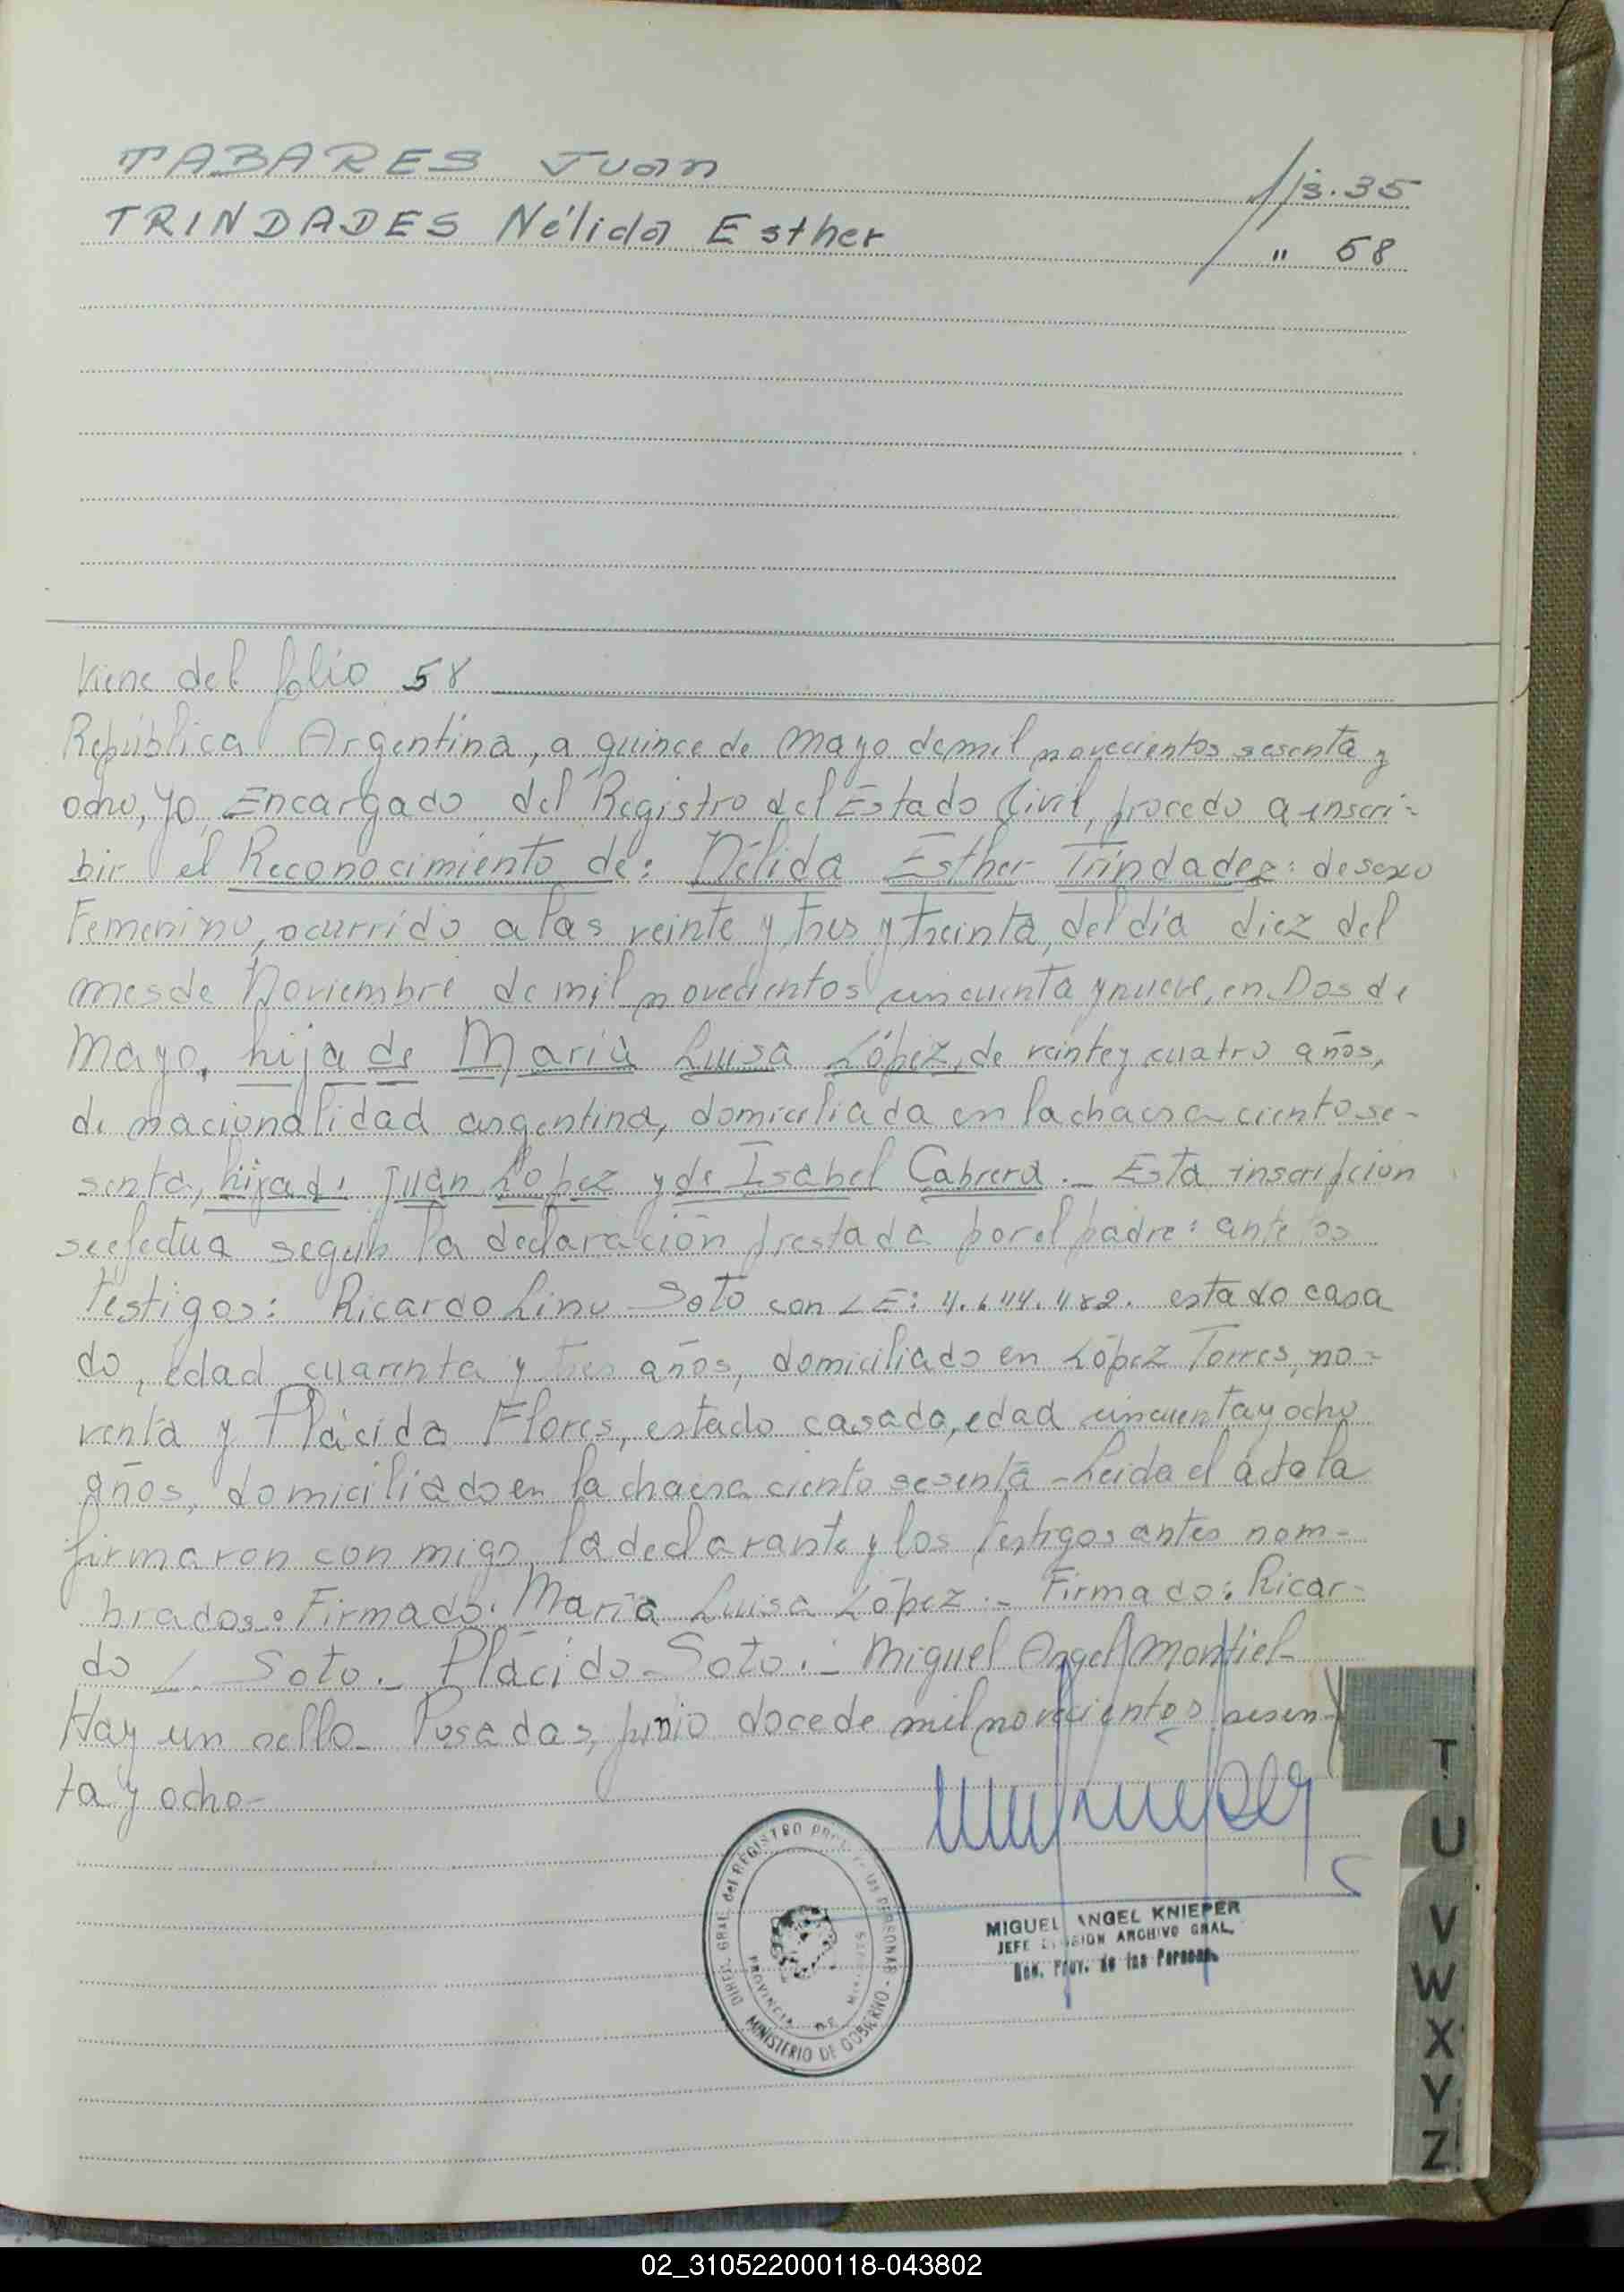 TABARES Juan fjs. 35
TRINDADES Nélida Esther " 58
Viene del folio 58
República Argentina, a quince de Mayo de mil novecientos sesenta y
ocho, yo, Encargado del Registro del Estado Civil, procedo a inscri-
bir el Reconocimiento de: Nélida Esther Trindadez: de sexo
Femenino, ocurrido a las veinte y tres y treinta, del día diez del
mes de Noviembre de mil novecientos cincuenta y nueve, en Dos de
Mayo, hija de María Luisa López, de veinte y cuatro años,
de nacionalidad argentina, domiciliada en la chacra ciento se-
senta, hija de Juan López y de Isabel Cabrera.- Esta inscripción
se efectua según la declaración prestada por el padre: ante los
Testigos: Ricardo Lino Soto con LE: estado casa
do, edad cuarenta y tres años, domiciliado en López Torres, no-
venta y Plácida Flores, estado casada, edad cincuenta y ocho
años, domiciliado en la chacra ciento sesenta - Leida el acta la
firmaron conmigo, la declarante y los testigos antes nom-
brados: Firmado: María Luisa López.- Firmado: Ricar-
do L. Soto.- Plácido Soto.- Miguel Angel Montiel-
Hay un sello- Posadas, junio doce de mil novecientos sesen-
ta y ocho-
DIREC. GRAL. del REGISTRO PROV. de las PERSONAS - MINISTERIO DE GOBIERNO
PROVINCIA DE MISIONES
MIGUEL ANGEL KNIEPER
JEFE DIVISION ARCHIVO GRAL.
Prov. de las Personas
T
U
V
W
X
Y
Z
02_310522000118-043802